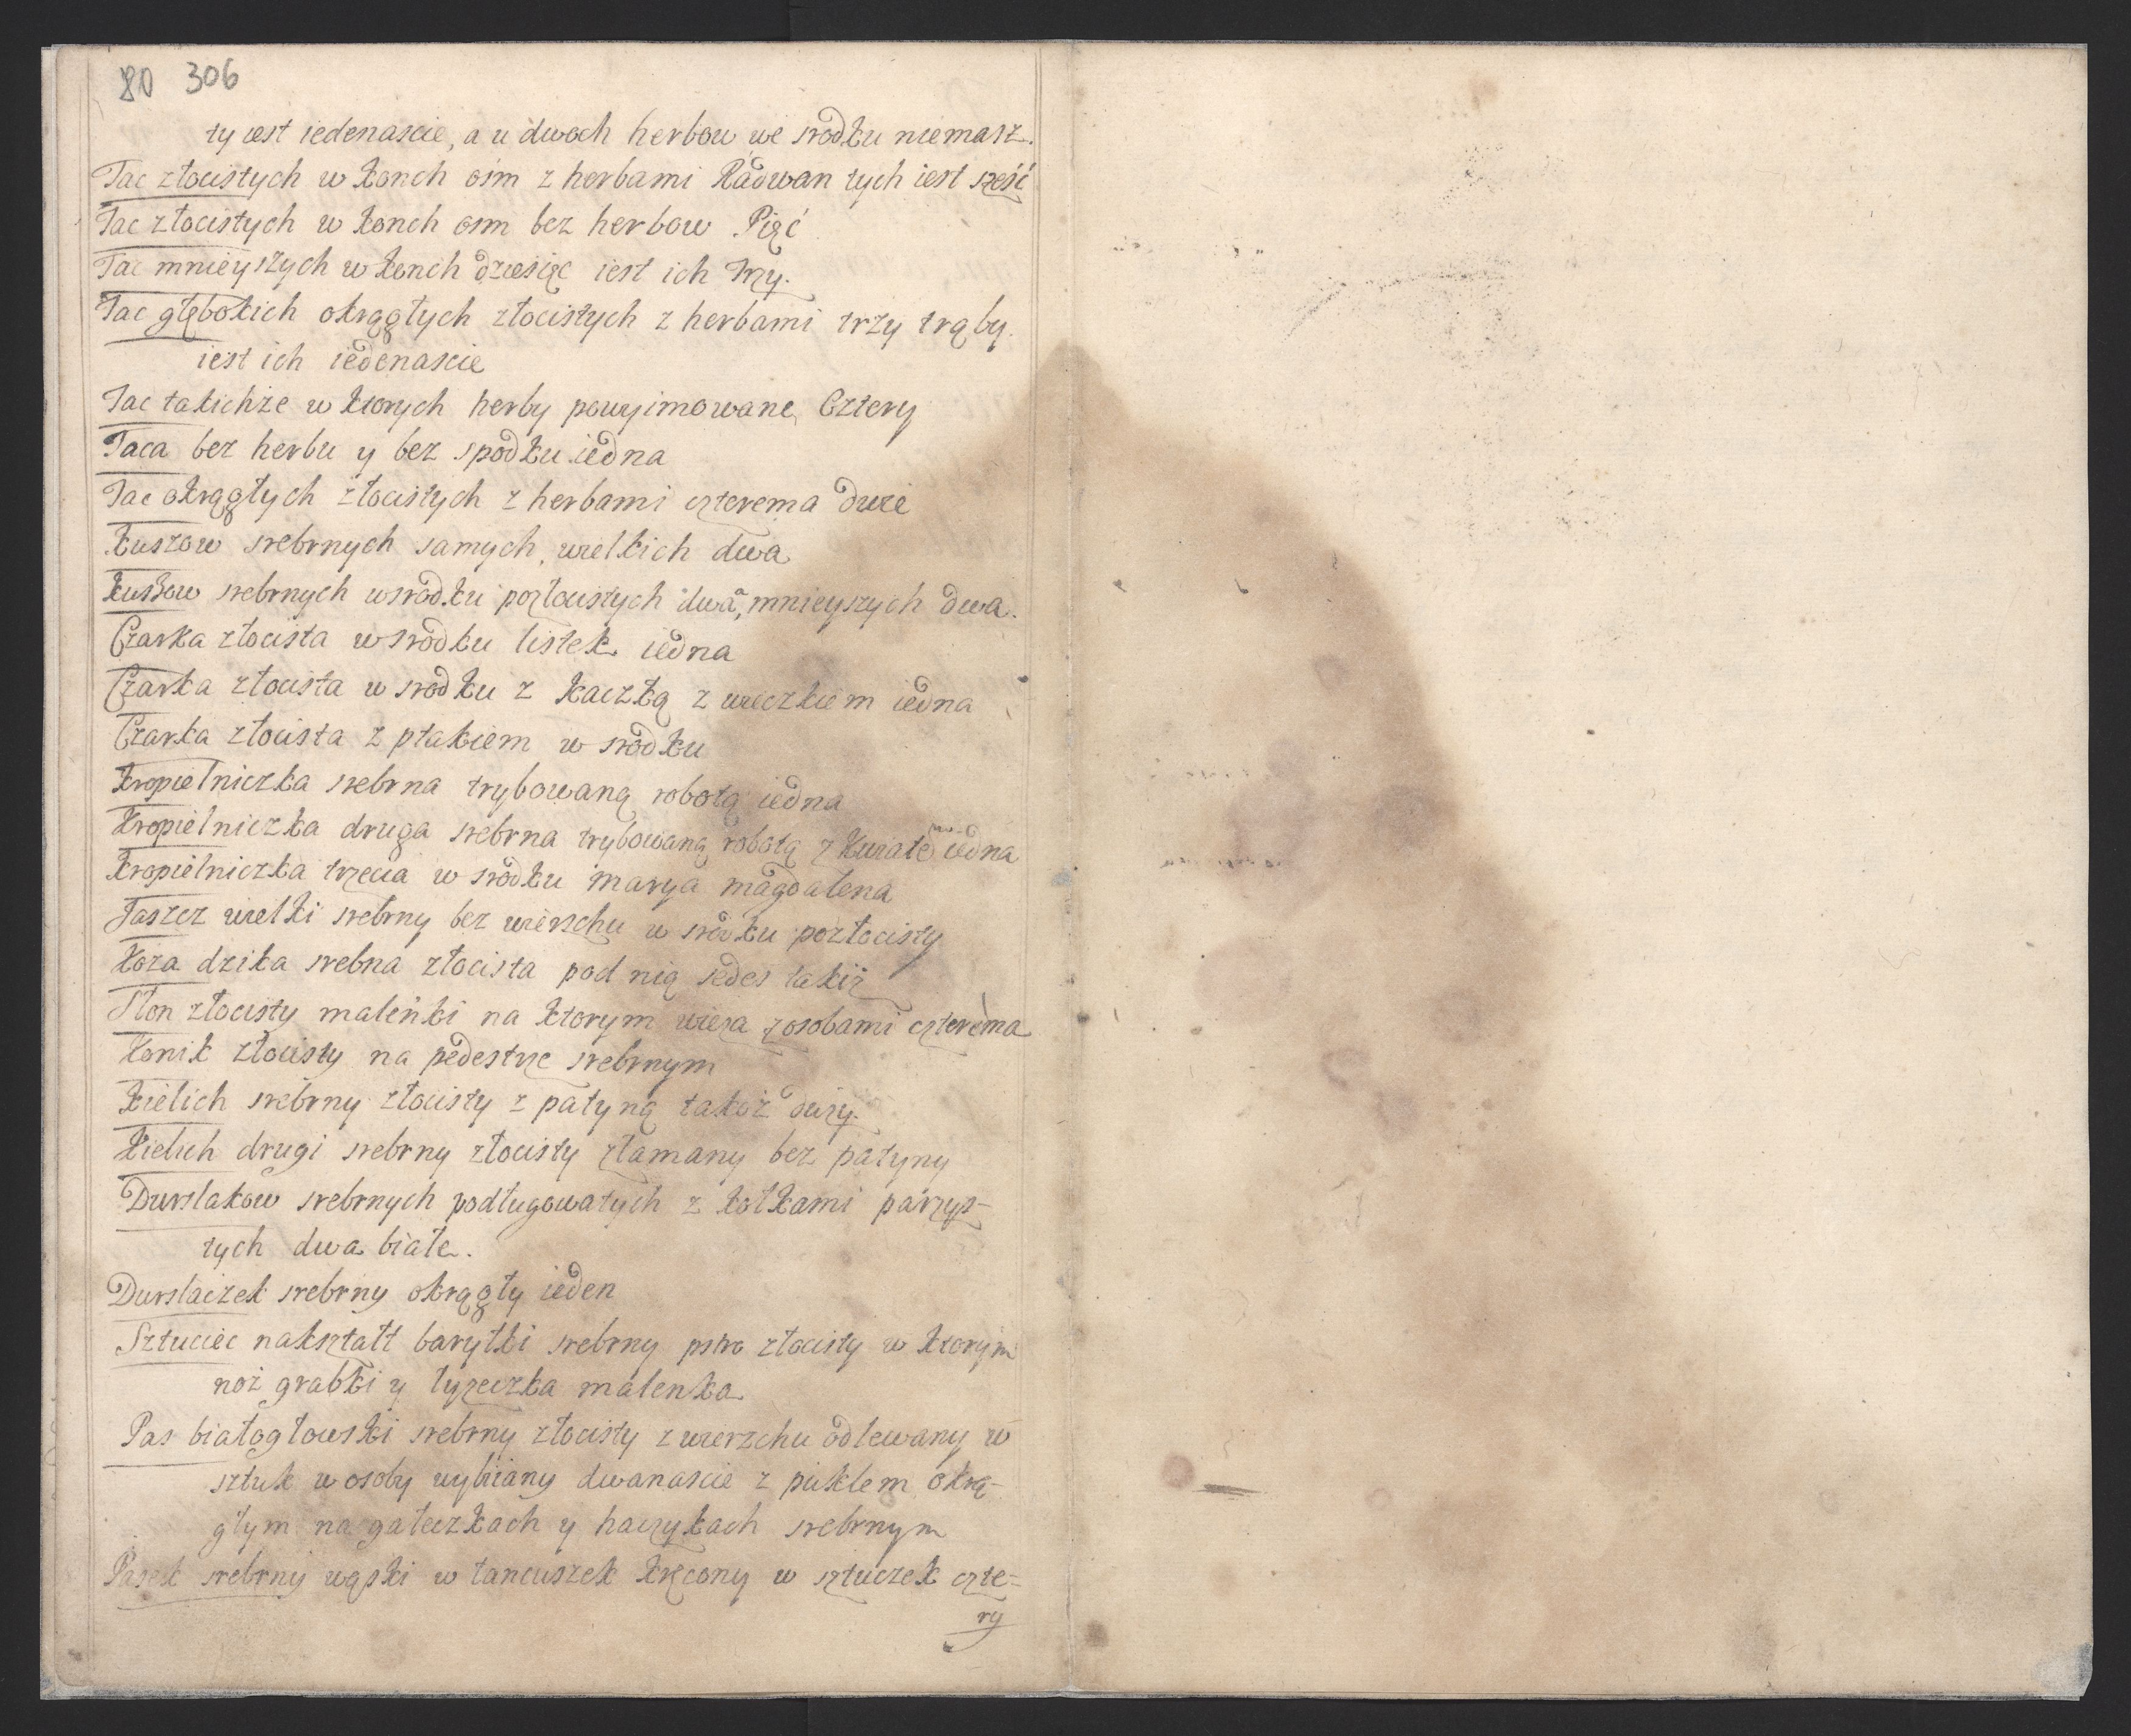 80 306
ty iest iedenascie, a u dwoch herbow we srodku niemasz.
Tac złocistych w konch ośm z herbami Radwan tych iest sześć
Tac złocistych w konch osm bez herbow Pięć
Tac mnieyszych w konch dziesięc iest ich Trzy.
Tac głębokich okrągłych złocistych z herbami trzy trąby.
iest ich iedenascie
Tac takichże w ktorych herby powyimowane Cztery
Taca bez herbu y bez spodku iedna
Tac okrągłych złocistych z herbami czterema dwie
Kuszow srebrnych samych wielkich dwa
Kuszow srebrnych wsrodku pozłocistych dwa, mnieyszych dwa.
Czarka złocista wsrodku listek iedna
Czarka złocista w srodku z kaczką z wieczkiem iedna
Czarka złocista z ptakiem w srodku
Kropielniczka srebrna trybowaną robotą iedna
Kropielniczka druga srebrna trybowaną robotą z kwiate iedna
Kropielniczka trzecia w srodku marya magdalena
Taszcz wielki srebrny bez wierzchu w srodku pozłocisty
Koza dzika srebna złocista pod nią sedes takiż
Słon złocisty maleńki na ktorym wieża z osobami czterema
Konik złocisty na pedestrze srebrnym
Kielich srebrny złocisty z patyną takoż duży.
Kielich drugi srebrny złocisty złamany bez patyny
Durslakow srebrnych podługowatych z kołkami parzys-
tych dwa białe.
Durslaczek srebrny okrągły ieden
Sztuciec nakształt baryłki srebrny pstro złocisty w ktorym
noż grabki y łyżeczka malenka
Pas białogłowski srebrny złocisty z wierzchu odlewany w
sztuk w osoby wybiiany dwanascie z puklem okrą-
głym na gałeczkach y haczykach srebrnym
Pasek srebrny wąski w łancuszek kręcony w sztuczek czte=
ry